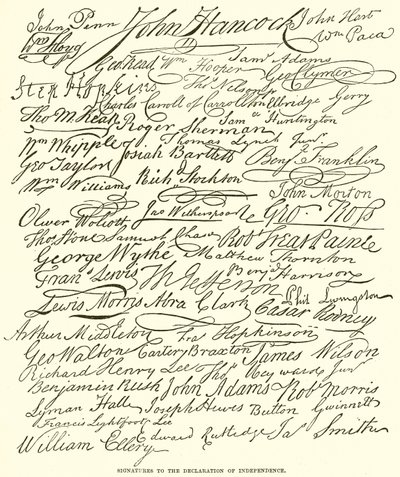 John Penn John Hancock John Hart
Wm Floyd Wm Paca
Geo Read Wm Hooper Saml Adams
Geo Clymer
Step Hopkins Thos Nelson jr
Charles Carroll of Carrollton Elbridge Gerry
Tho M:Kean Roger Sherman Saml Huntington
Wm Whipple Thomas Lynch Junr
Josiah Bartlett Benj Franklin
Geo Taylor
Wm Williams Richd Stockton John Morton
Oliver Wolcott Jno Witherspoon Geo Ross
Thos Stone Samuel Chase Robt Treat Paine
George Wythe Matthew Thornton
Frans Lewis Th Jefferson Benj Harrison
Lewis Morris Abra Clark Phil Livingston
Caesar Rodney
Arthur Middleton Fras Hopkinson
Geo Walton Carter Braxton James Wilson
Richard Henry Lee Thos Heyward Junr
Benjamin Rush John Adams Robt Morris
Lyman Hall Joseph Hewes Button Gwinnett
Francis Lightfoot Lee
William Ellery Edward Rutledge Jas Smith
SIGNATURES TO THE DECLARATION OF INDEPENDENCE.